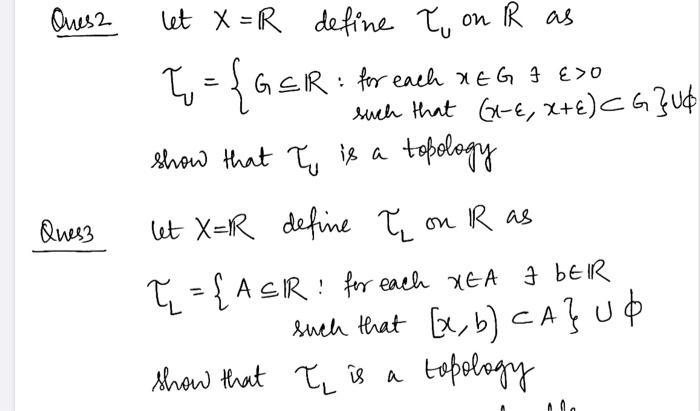 Ques2 let X = ℝ define τ_U on ℝ as
τ_U = { G ⊆ ℝ : for each x ∈ G ∃ ε > 0
such that (x-ε, x+ε) ⊂ G } ∪ ϕ
show that τ_U is a topology
Ques3 let X = ℝ define τ_L on ℝ as
τ_L = { A ⊆ ℝ : for each x ∈ A ∃ b ∈ ℝ
such that [x, b) ⊂ A } ∪ ϕ
show that τ_L is a topology